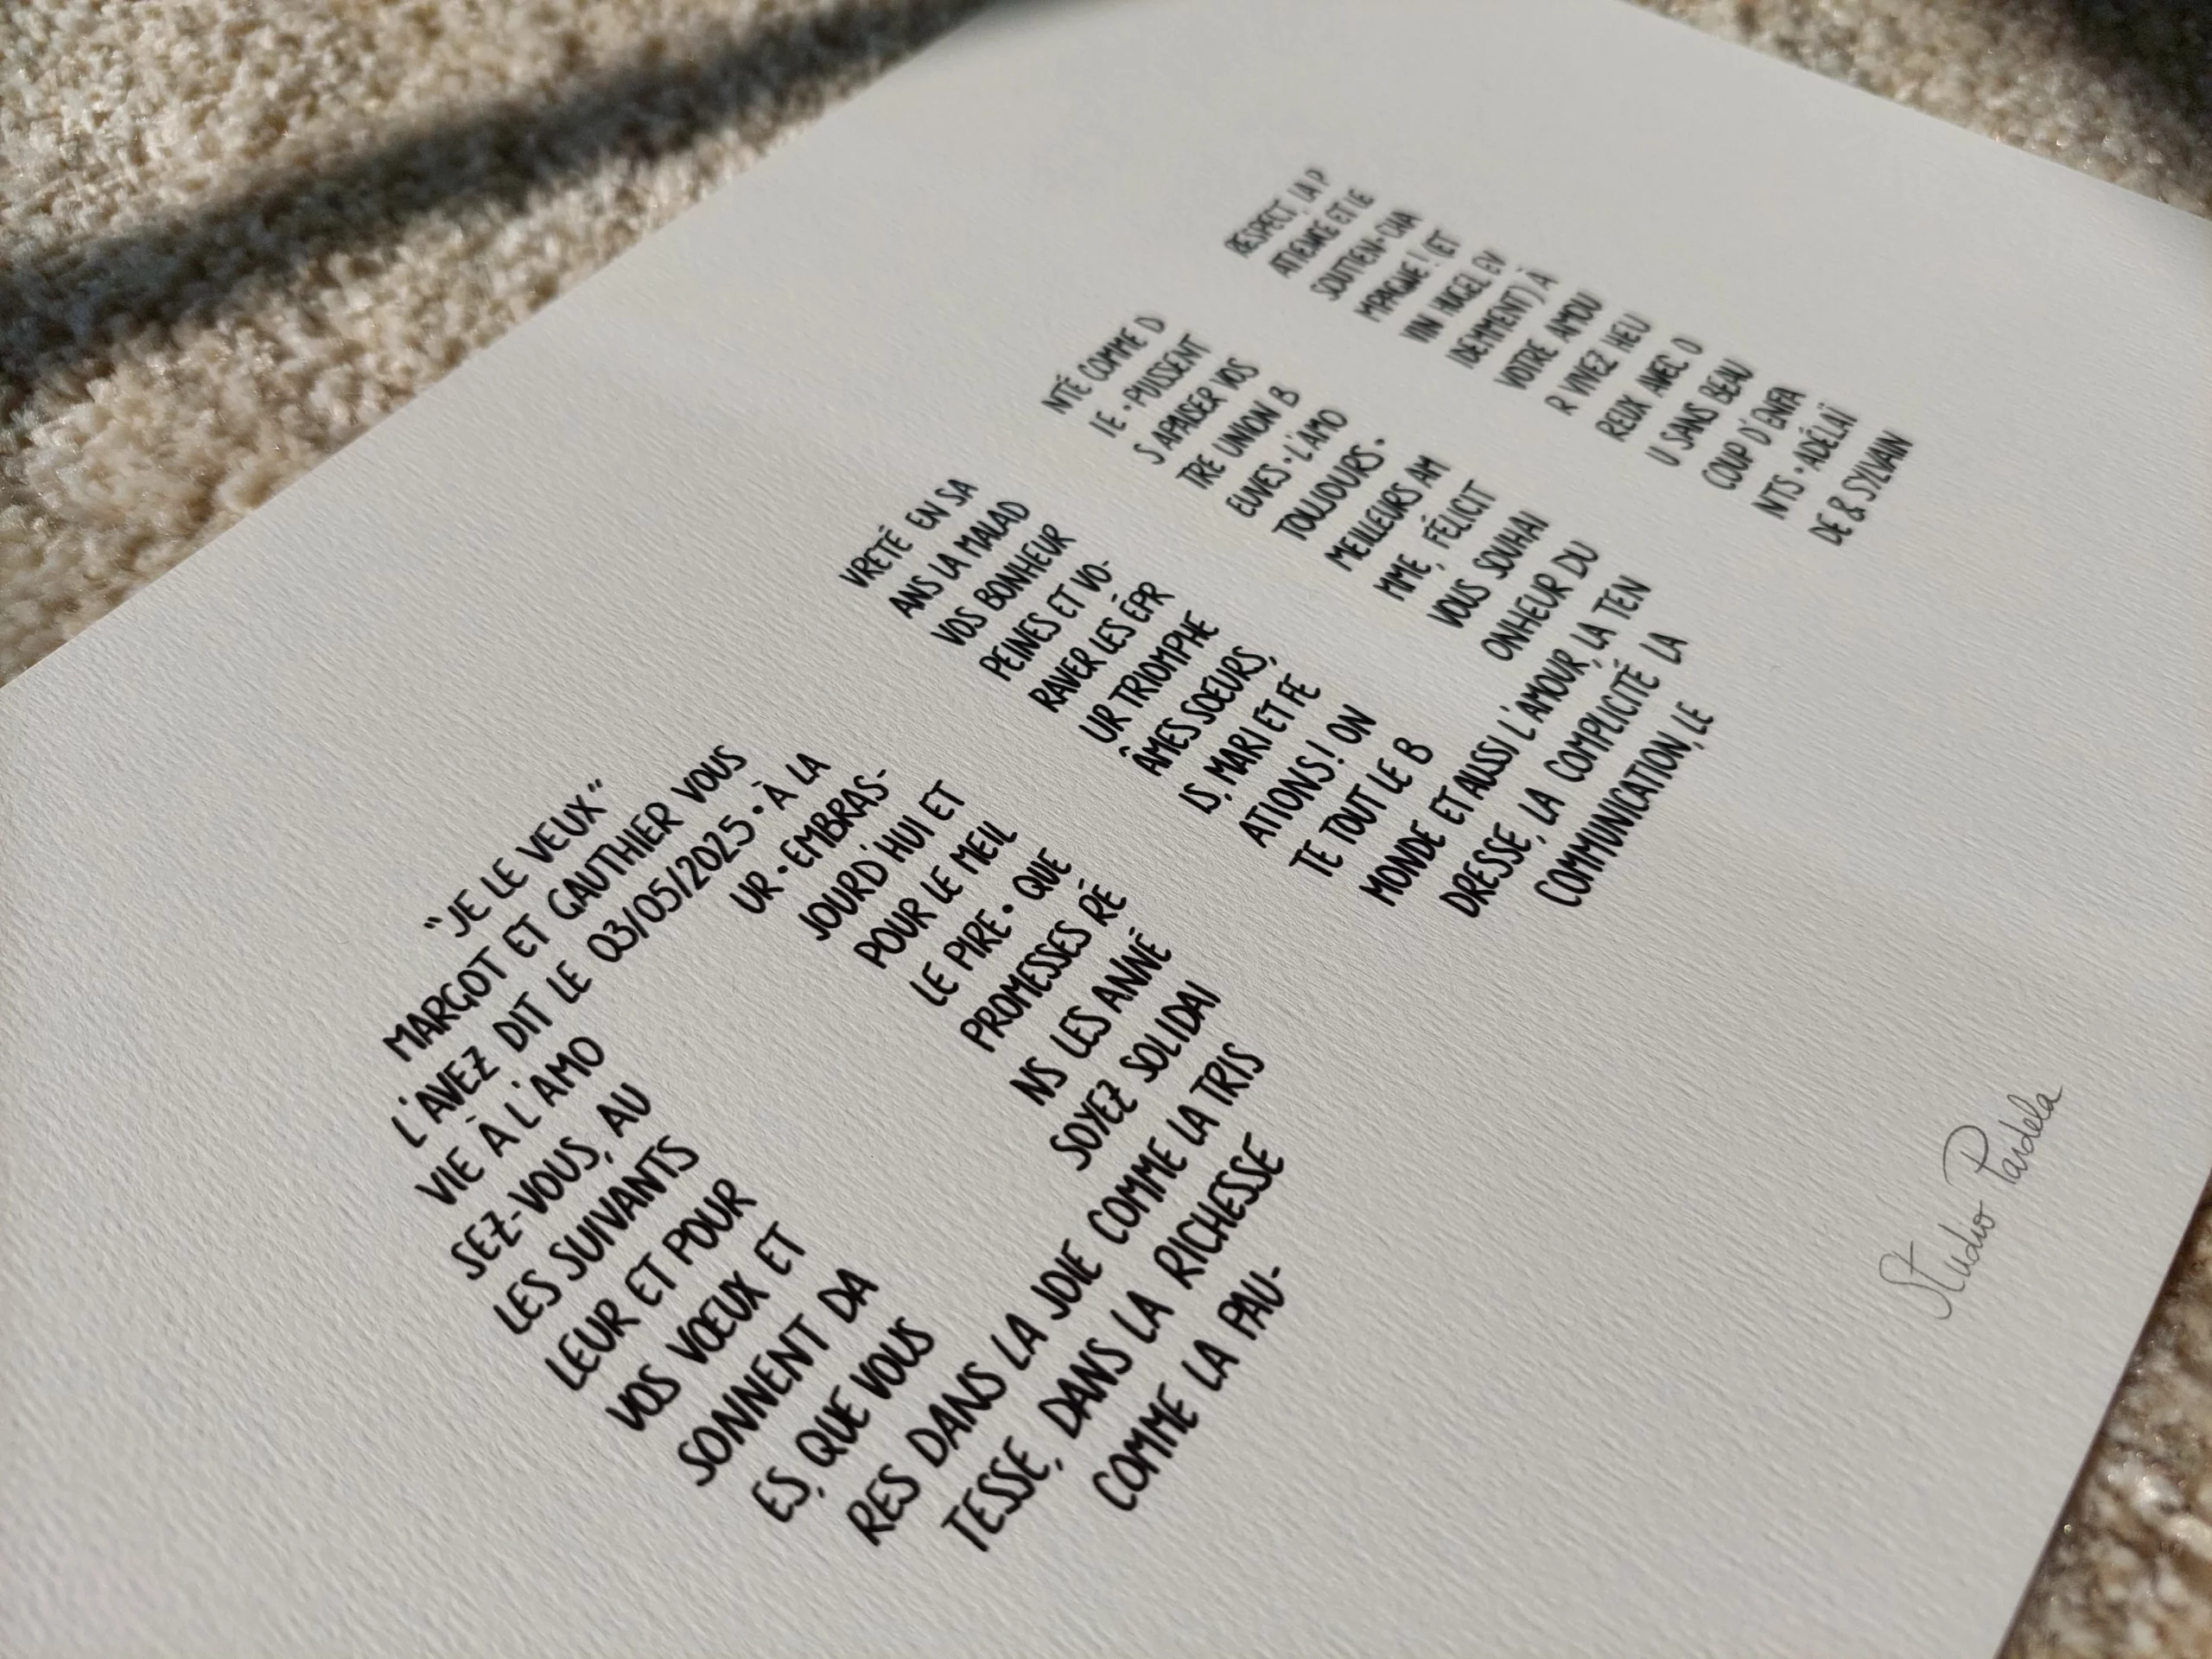 “JE LE VEUX”
MARGOT ET GAUTHIER VOUS
L'AVEZ DIT LE 03/05/2025 • À LA
VIE À L'AMO UR • EMBRAS-
SEZ-VOUS, AU JOURD'HUI ET
LES SUIVANTS POUR LE MEIL
LEUR ET POUR LE PIRE • QUE
VOS VŒUX ET PROMESSES RÉ
SONNENT DA NS LES ANNÉ
ES, QUE VOUS SOYEZ SOLIDAI
RES DANS LA JOIE COMME LA TRIS
TESSE, DANS LA RICHESSE
COMME LA PAU-
VRETÉ EN SA NTÉ COMME D
ANS LA MALAD IE • PUISSENT
VOS BONHEUR S APAISER VOS
PEINES ET VO- TRE UNION B
RAVER LES ÉPR EUVES • L'AMO
UR TRIOMPHE TOUJOURS •
ÂMES SOEURS, MEILLEURS AM
IS, MARI ET FE MME, FÉLICIT
ATIONS ! ON VOUS SOUHAI
TE TOUT LE B ONHEUR DU
MONDE ET AUSSI L'AMOUR, LA TEN
DRESSE, LA COMPLICITÉ LA
COMMUNICATION, LE
RESPECT, LA P
ATIENCE ET LE
SOUTIEN • CHA
MPAGNE ! (ET
VIN HUGEL EV
IDEMMENT) À
VOTRE AMOU
R VIVEZ HEU
REUX AVEC O
U SANS BEAU
COUP D'ENFA
NTS • ADÉLAÏ
DE & SYLVAIN
Studio Pardela